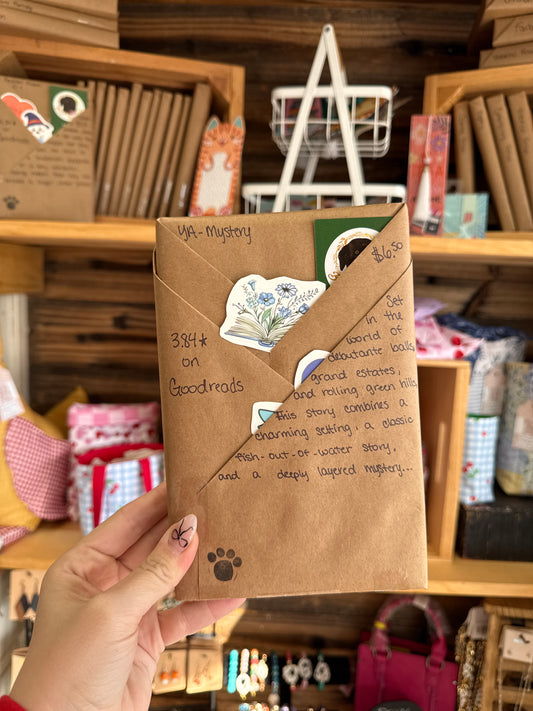 YA-Mystery
$6.50
3.84★
on
Goodreads
Set
in the
world of
debutante balls,
grand estates,
and rolling green hills,
this story combines a
charming setting, a classic
fish-out-of-water story,
and a deeply layered mystery...